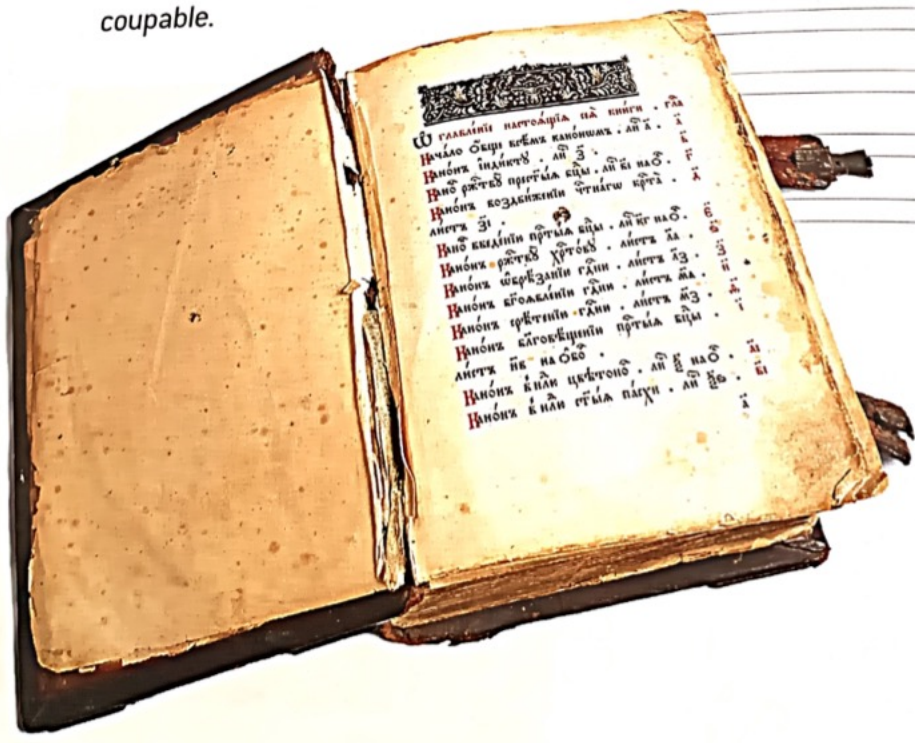 coupable.
Ѡглавле́нїе настоѧ́щїѧ сеѧ̀ кни́ги . гла
Нача́ло ѻ҆́бще всѣ́мъ кано́нѡмъ . ли а҃ . а҃
Кано́нъ і҆ндї́кту . ли з҃ . в҃
Кано ржⷭ҇тву̀ прест҃ы́ѧ бц҃ы . ли в҃і на ѻ . г҃
Кано́нъ воздви́женїи чⷭ҇тна́гѡ крⷭ҇та̀ . д҃
ли́стъ з҃і .
Кано введе́нїи прⷭ҇ты́ѧ бц҃ы . ли к҃г на ѻ . є҃
Кано́нъ ржⷭ҇тву̀ хрⷭ҇то́ву . ли́стъ л҃а . ѕ҃
Кано́нъ ѡ҆брѣ́занїи гдⷭ҇ни . ли́стъ л҃з . з҃
Кано́нъ бг҃оѧвле́нїи гдⷭ҇ни . ли́стъ м҃а . и҃
Кано́нъ срѣ́тенїи гдⷭ҇ни . ли́стъ м҃з . ѳ҃
Кано́нъ бл҃говѣ́щенїи прⷭ҇ты́ѧ бц҃ы . і҃
ли́стъ н҃в на ѻ҆бо .
Кано́нъ в нⷣ҇ли цвѣ́тоно . ли на ѻ . а҃і
Кано́нъ в нⷣ҇ли ст҃ы́ѧ па́схи . ли . в҃і